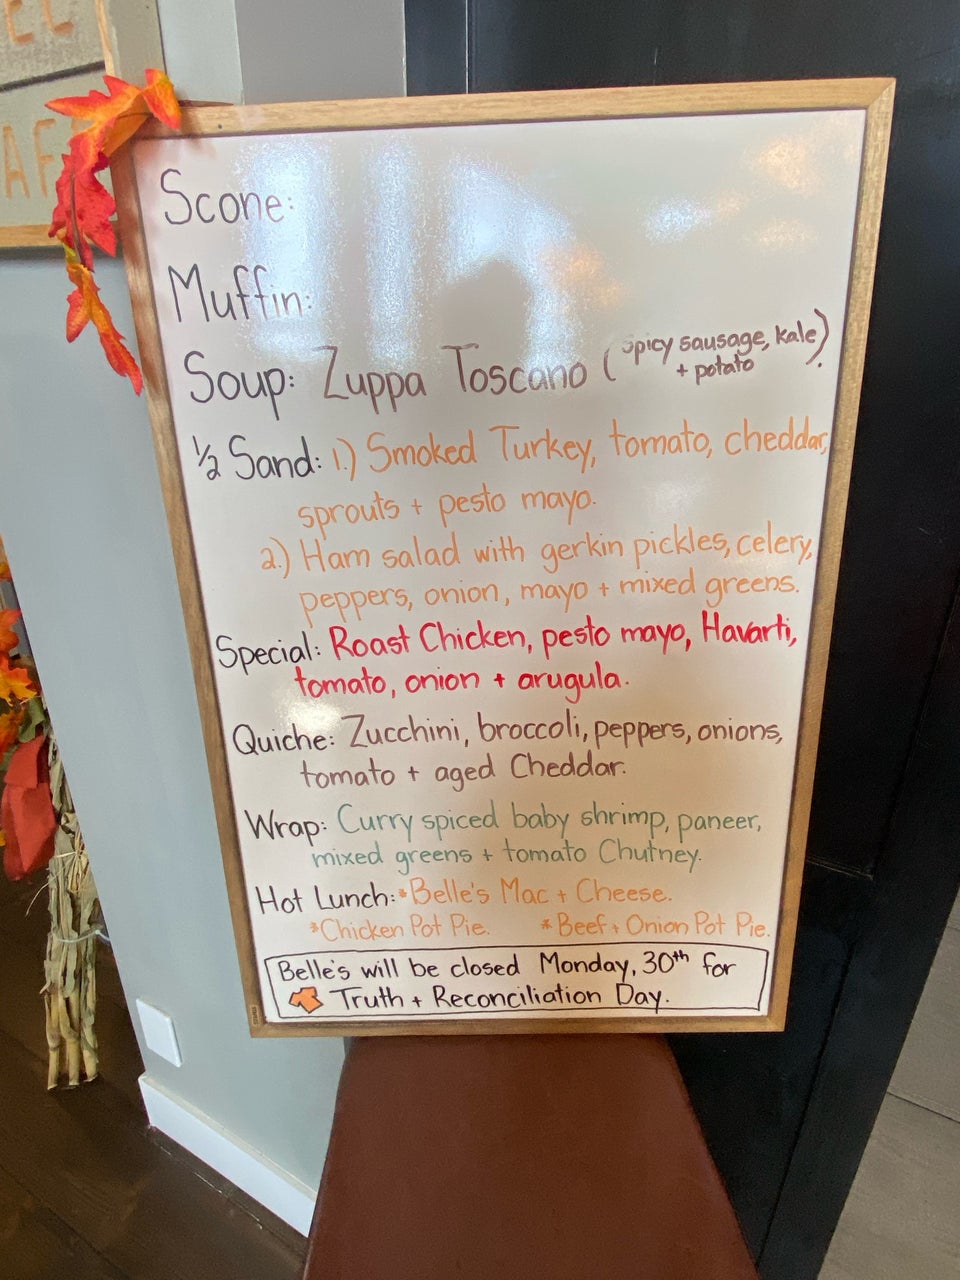 EL
AF
Scone:
Muffin:
Soup: Zuppa Toscano (spicy sausage, kale
+ potato)
½ Sand: 1.) Smoked Turkey, tomato, cheddar,
sprouts + pesto mayo.
2.) Ham salad with gerkin pickles, celery,
peppers, onion, mayo + mixed greens.
Special: Roast Chicken, pesto mayo, Havarti,
tomato, onion + arugula.
Quiche: Zucchini, broccoli, peppers, onions,
tomato + aged Cheddar.
Wrap: Curry spiced baby shrimp, paneer,
mixed greens + tomato Chutney.
Hot Lunch: *Belle's Mac + Cheese.
*Chicken Pot Pie. *Beef + Onion Pot Pie.
Belle's will be closed Monday, 30th for
Truth + Reconciliation Day.